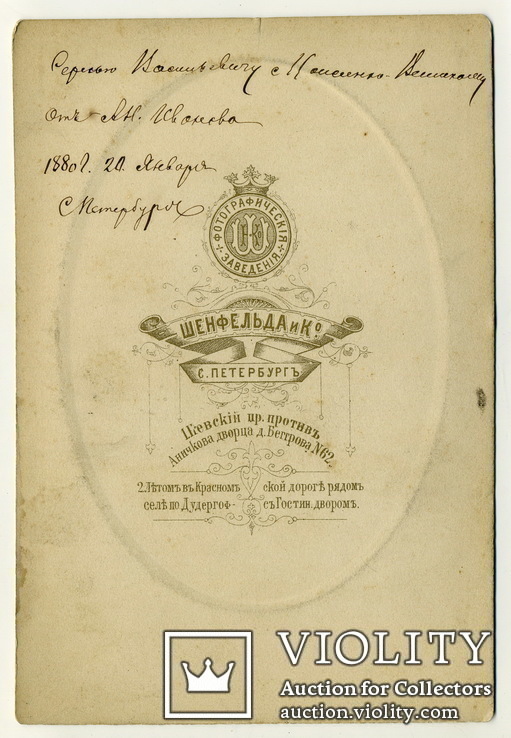 Сергѣю Васильевичу
отъ Ан. Иванова
1880 г. 20 Января
С Петербургъ
ФОТОГРАФИЧЕСКІЯ
ЗАВЕДЕНІЯ
ШЕНФЕЛЬДА и Кº
С. ПЕТЕРБУРГЪ
1. Невскій пр. противъ
Аничкова дворца д. Беггрова N62.
2. Лѣтомъ въ Красномъ
селѣ по Дудергоф-
ской дорогѣ рядомъ
съ Гостин. дворомъ.
VIOLITY
Auction for Collectors
auction.violity.com